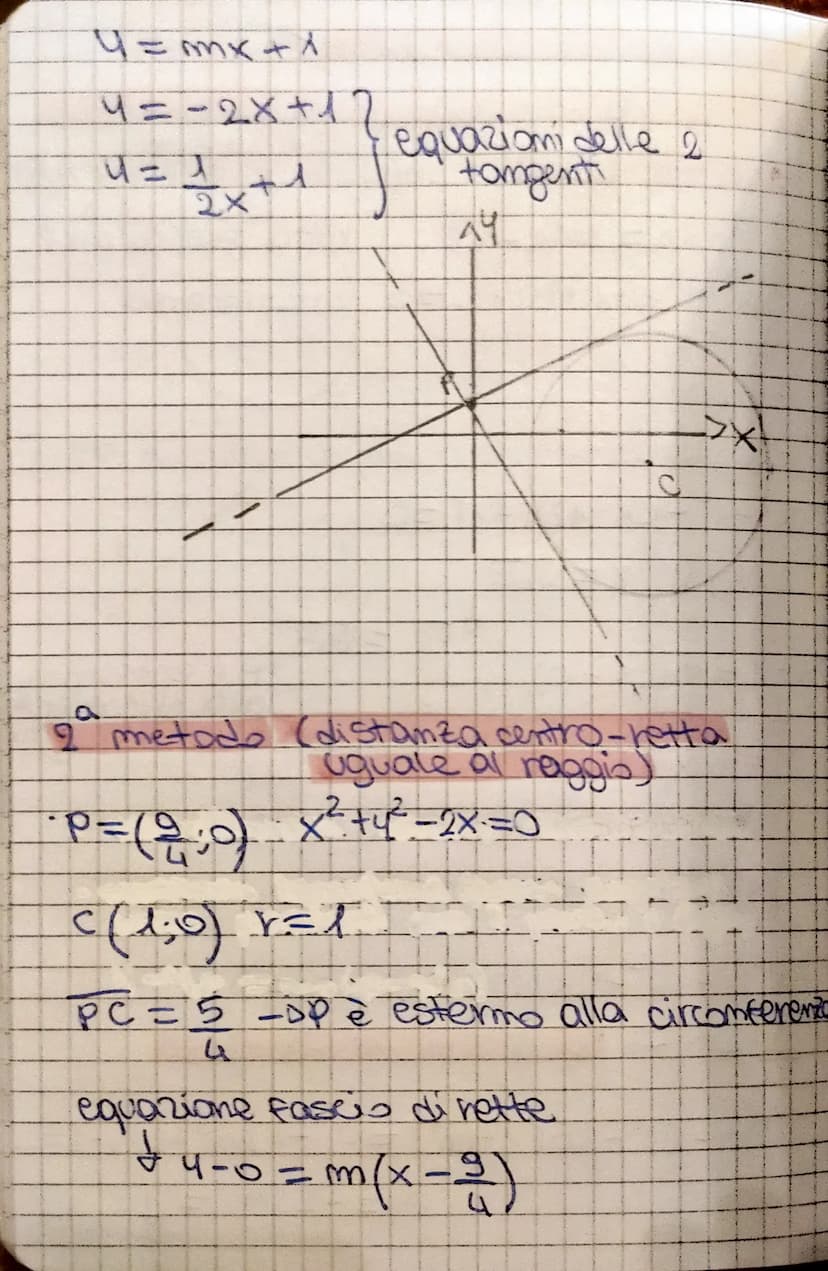 y = mx + 1
y = -2x + 1
y = 1/2x + 1
} equazioni delle 2
tangenti
y
P
x
C
2ª metodo (distanza centro-retta
uguale al raggio)
P = (9/4;0) x² + y² - 2x = 0
C (1;0) r = 1
PC = 5/4 → P è esterno alla circonferenza
equazione fascio di rette
↓ y - 0 = m(x - 9/4)